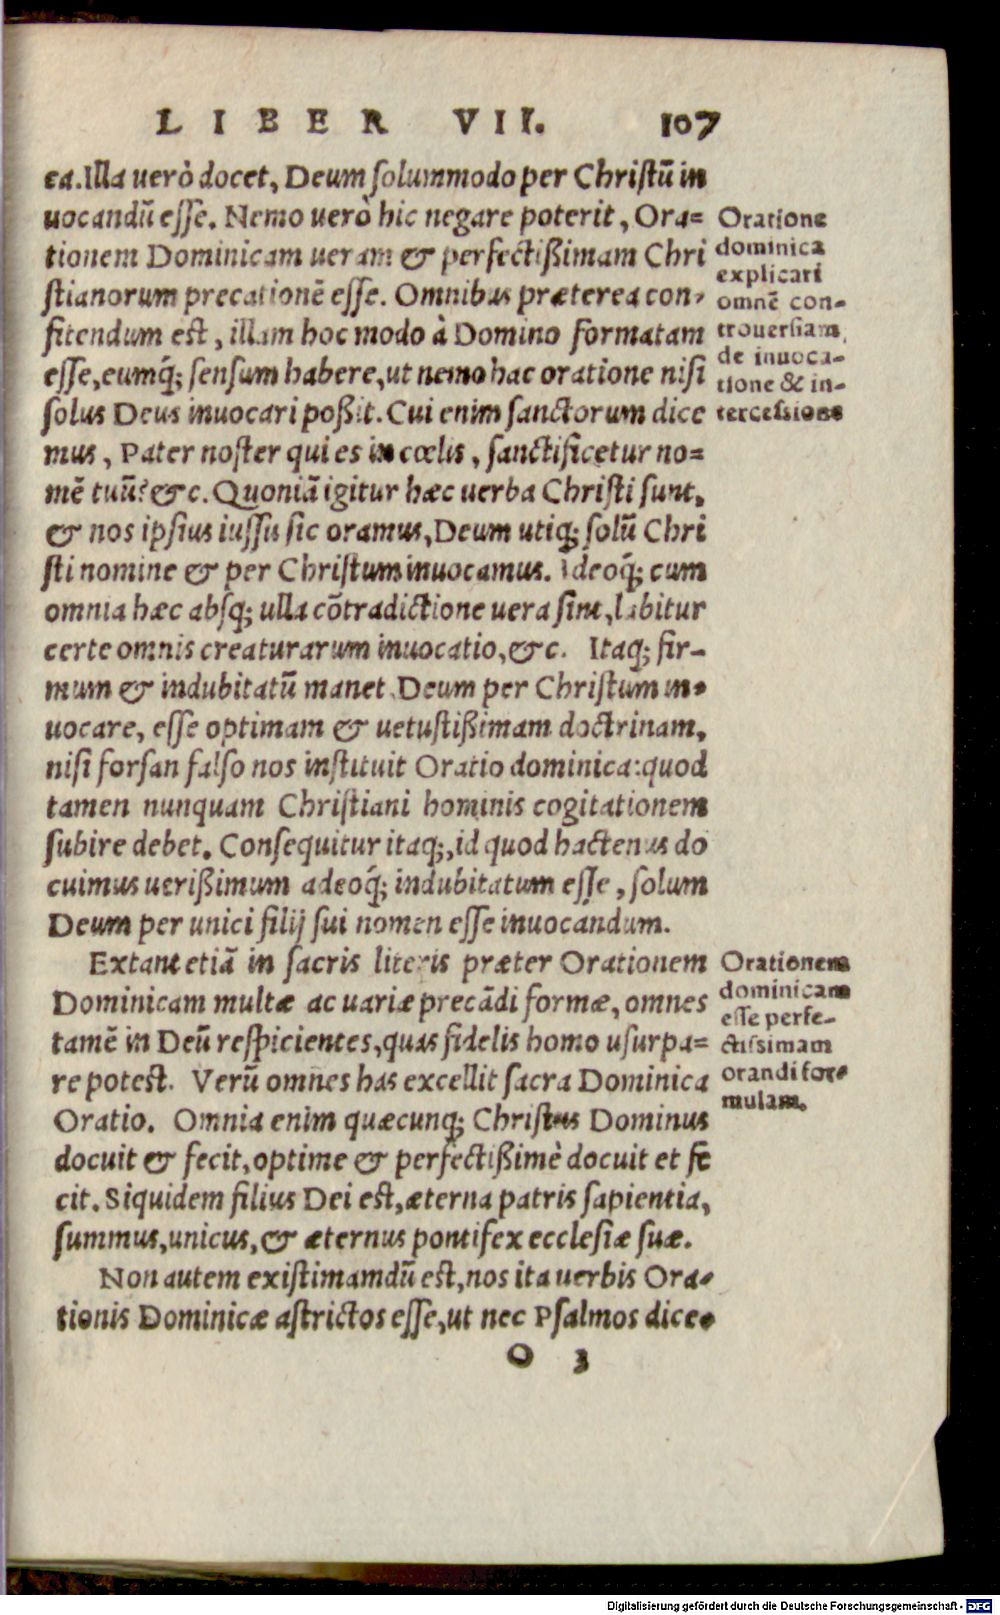 LIBER VII. 107
ea. Illa uerò docet, Deum ſolummodo per Chriſtū in
uocandū eſſe. Nemo uerò hic negare poterit, Ora=
tionem Dominicam ueram & perfectißimam Chri
ſtianorum precationē eſſe. Omnibus præterea con-
fitendum eſt, illam hoc modo à Domino formatam
eſſe, eumq́; ſenſum habere, ut nemo hac oratione niſi
ſolus Deus inuocari poßit. Cui enim ſanctorum dice
mus, Pater noſter qui es in cœlis, ſanctificetur no=
mē tuū? &c. Quoniā igitur hæc uerba Chriſti ſunt,
& nos ipſius iuſſu ſic oramus, Deum utiq; ſolū Chri
ſti nomine & per Chriſtum inuocamus. Ideoq́; cum
omnia hæc abſq; ulla cōtradictione uera ſint, labitur
certe omnis creaturarum inuocatio, &c. Itaq; fir-
mum & indubitatū manet Deum per Chriſtum in-
uocare, eſſe optimam & uetuſtißimam doctrinam,
niſi forſan falſo nos inſtituit Oratio dominica: quod
tamen nunquam Chriſtiani hominis cogitationem
ſubire debet. Conſequitur itaq;, id quod hactenus do
cuimus uerißimum adeoq́; indubitatum eſſe, ſolum
Deum per unici filij ſui nomen eſſe inuocandum.
Oratione
dominica
explicari
omnē con-
trouerſiam,
de inuoca-
tione & in-
terceſsione
Extant etiā in ſacris literis præter Orationem
Dominicam multæ ac uariæ precādi formæ, omnes
tamē in Deū reſpicientes, quas fidelis homo uſurpa=
re poteſt. Verū omnes has excellit ſacra Dominica
Oratio. Omnia enim quæcunq; Chriſtus Dominus
docuit & fecit, optime & perfectißimè docuit et fe
cit. Siquidem filius Dei eſt, æterna patris ſapientia,
ſummus, unicus, & æternus pontifex eccleſiæ ſuæ.
Orationem
dominicam
eſſe perfe-
ctiſsimam
orandi for-
mulam.
Non autem exiſtimamdū eſt, nos ita uerbis Ora-
tionis Dominicæ aſtrictos eſſe, ut nec Pſalmos dice-
O 3
Digitalisierung gefördert durch die Deutsche Forschungsgemeinschaft - DFG